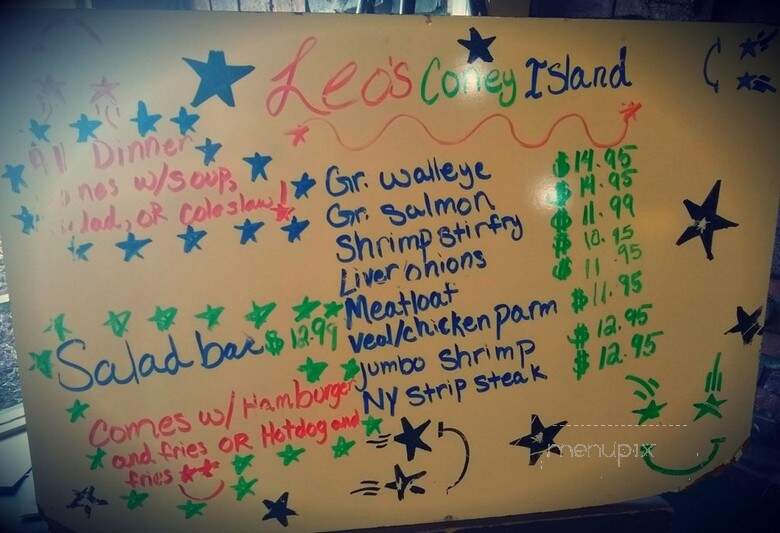 Leo's Coney Island
All Dinner
w/soup,
OR Coleslaw!
Gr. walleye $14.95
Gr. Salmon $14.95
Shrimp stirfry $11.99
Liver onions $10.95
Meatloaf $11.95
veal/chicken parm $11.95
jumbo shrimp $12.95
NY Strip steak $12.95
Salad bar $12.99
Comes w/ Hamburger
and fries OR Hotdog and
fries
menupix